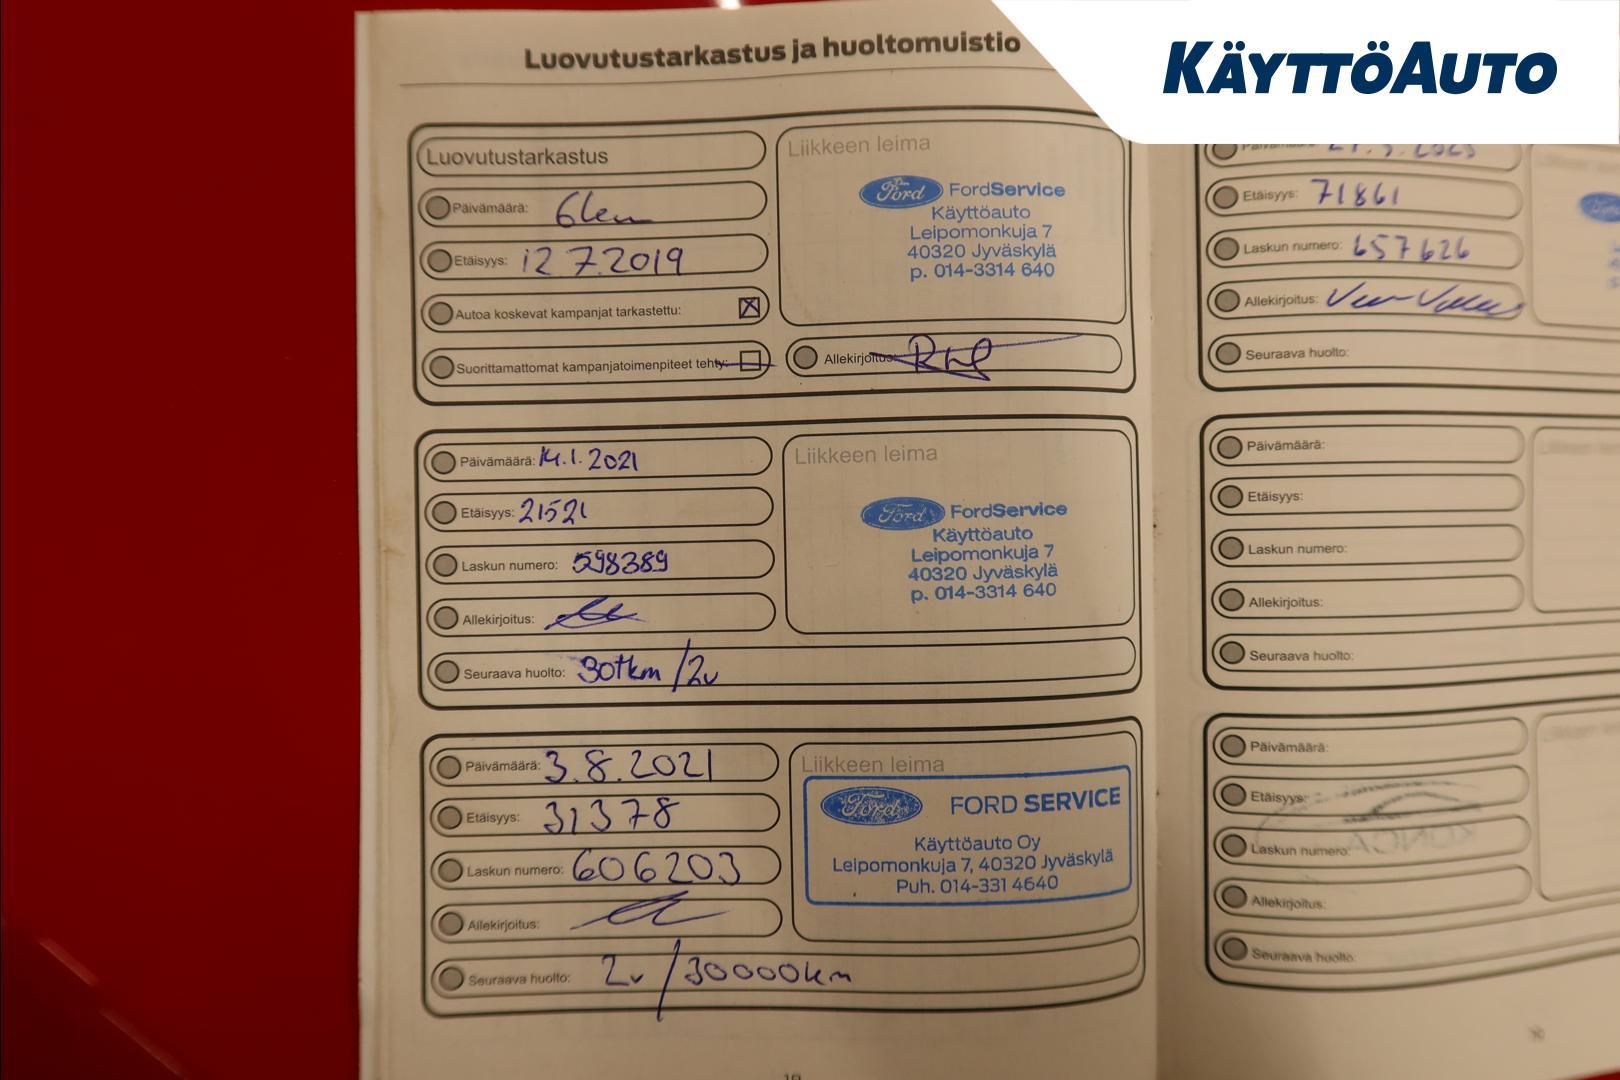 KÄYTTÖAUTO
Luovutustarkastus ja huoltomuistio
Luovutustarkastus
Päivämäärä: 6km
Etäisyys: 12.7.2019
Autoa koskevat kampanjat tarkastettu:
Suorittamattomat kampanjatoimenpiteet tehty:
Liikkeen leima
Ford FordService
Käyttöauto
Leipomonkuja 7
40320 Jyväskylä
p. 014-3314 640
Allekirjoitus:
Päivämäärä: 14.1.2021
Etäisyys: 21521
Laskun numero: 598389
Allekirjoitus:
Seuraava huolto: 30tkm/2v
Liikkeen leima
Ford FordService
Käyttöauto
Leipomonkuja 7
40320 Jyväskylä
p. 014-3314 640
Päivämäärä: 3.8.2021
Etäisyys: 31378
Laskun numero: 606203
Allekirjoitus:
Seuraava huolto: 2v/30000km
Liikkeen leima
Ford FORD SERVICE
Käyttöauto Oy
Leipomonkuja 7, 40320 Jyväskylä
Puh. 014-331 4640
Päivämäärä:
Etäisyys: 71861
Laskun numero: 657626
Allekirjoitus:
Seuraava huolto:
Päivämäärä:
Etäisyys:
Laskun numero:
Allekirjoitus:
Seuraava huolto:
Päivämäärä:
Etäisyys:
Laskun numero:
Allekirjoitus:
Seuraava huolto: